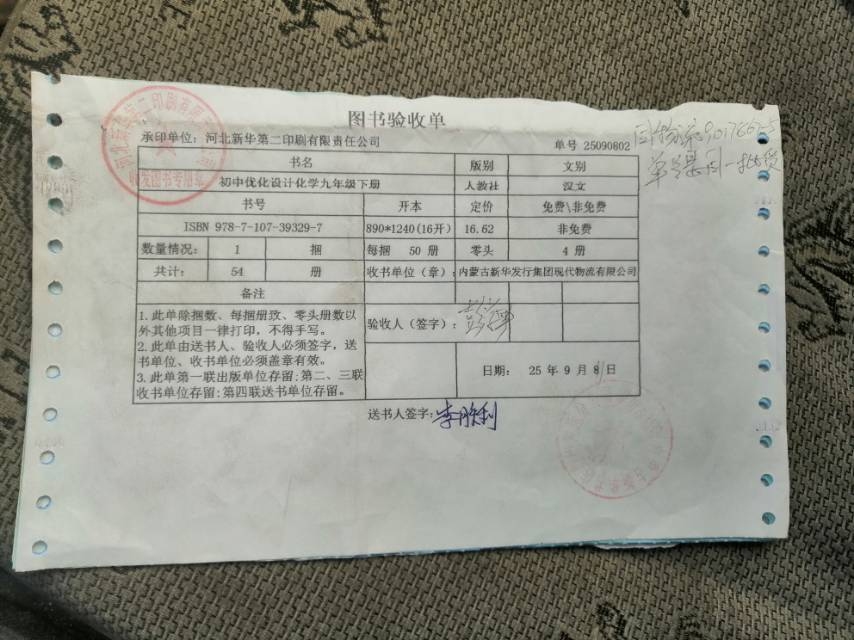 图书验收单
承印单位：河北新华第二印刷有限责任公司
单号 25090802
书名 版别 文别
初中优化设计化学九年级下册 人教社 汉文
书号 开本 定价 免费\非免费
ISBN 978-7-107-39329-7 890*1240(16开) 16.62 非免费
数量情况： 1 捆 每捆 50 册 零头 4 册
共计： 54 册 收书单位（章）： 内蒙古新华发行集团现代物流有限公司
备注
1.此单除捆数、每捆册致、零头册数以
外其他项目一律打印，不得手写。
2.此单由送书人、验收人必须签字，送
书单位、收书单位必须盖章有效。
3.此单第一联出版单位存留:第二、三联
收书单位存留:第四联送书单位存留。
验收人（签字）：
日期： 25 年 9 月 8 日
送书人签字： 李胜利